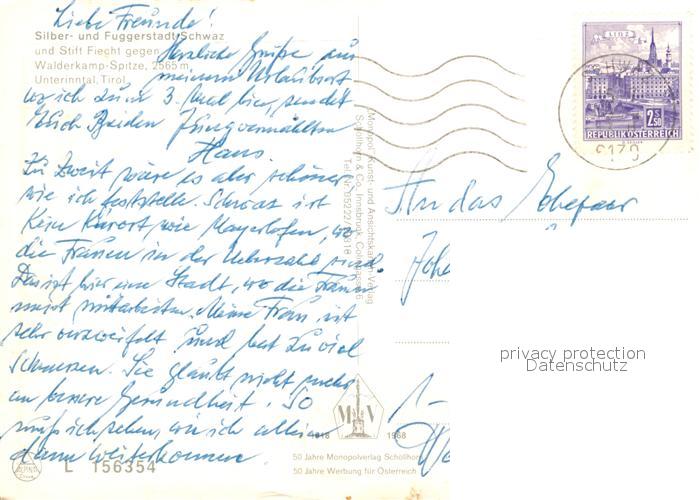 Liebe Freunde!
Silber- und Fuggerstadt Schwaz
und Stift Fiecht gegen
Walderkamp-Spitze, 2565 m,
Unterinntal, Tirol
Herzliche Grüße aus
meinem Urlaubsort
wo ich zum 3. Mal bin, sendet
Euch Beiden Jungvermählten
Hans.
Zu Zweit wäre es aber schöner
wie ich feststelle. Schwaz ist
Kein Kurort wie Mayrhofen, wo
die Frauen in der Überzahl sind.
Das ist hier eine Stadt, wo die Frauen
meist mitarbeiten. Meine Frau ist
sehr verzweifelt und hat zu viel
Schmerzen. Sie glaubt nicht mehr
an bessere Gesundheit. So
muß ich sehen, wie ich allein
dann weiterkomme.
L 156354
Monopol Kunst- und Ansichtskarten Verlag
Schöllhorn & Co., Innsbruck,
MSV
1968
50 Jahre Monopolverlag Schöllhorn
50 Jahre Werbung für Österreich
LINZ
2.50
REPUBLIK ÖSTERREICH
6130
An das Ehepaar
Joha
privacy protection
Datenschutz